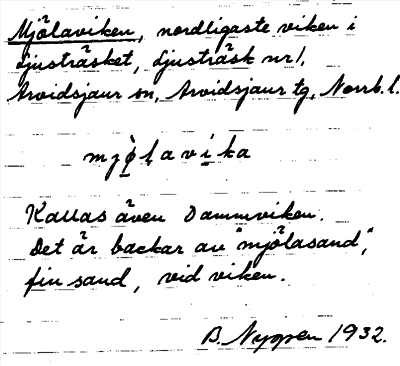 Mjölaviken, nordligaste viken i
Ljusträsket, Ljusträsk nr 1,
Arvidsjaur sn, Arvidsjaur tg, Norrb. l.
mjö̀lavika
Kallas även Dammviken.
Det är backar av "mjölasand",
fin sand, vid viken.
B. Nyppen 1932.